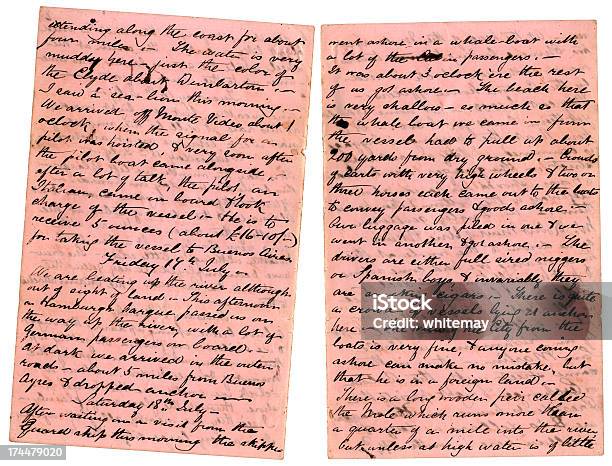 extending along the coast for about
four miles. — The water is very
muddy here — just the color of
the Clyde about Dumbarton. —
I saw a sea-lion this morning. —
We arrived off Monte Video about 1
oclock, when the signal for a
pilot was hoisted, & very soon after
the pilot boat came alongside, —
after a lot of talk, the pilot, an
Italian, came on board & took
charge of the vessel. — He is to
receive 5 ounces (about £16-10/-)
for taking the vessel to Buenos Aires
Friday 17th July. —
We are beating up the river although
out of sight of land. — This afternoon
a Hamburgh barque passed us on
the way up the river, with a lot of
German passengers on board. —
at dark we arrived in the outer
roads — about 5 miles from Buenos
Ayres & dropped anchor —
Saturday 18th July —
After waiting on a visit from the
guard ship this morning the skipper
went ashore in a whale-boat with
a lot of the passengers. —
It was about 3 oclock ere the rest
of us got ashore. — The beach here
is very shallow — so much so that
the whale boat we came in from
the vessel had to pull up about
200 yards from dry ground. — Crowds
of carts with very high wheels & two or
three horses each came out to the boats
to convey passengers & goods ashore. —
Our luggage was piled in one & we
went in another & got ashore. — The
drivers are either full sized niggers
or Spanish boys & invariably they
are smoking cigars. — There is quite
a crowd of vessels lying at anchor
here. — The City from the
boats is very fine, & anyone coming
ashore can make no mistake, but
that he is in a foreign land. —
There is a long wooden pier called
the Mole which runs more than
a quarter of a mile into the river
but unless at high water is of little
iStock
Credit: whitemay
174479020